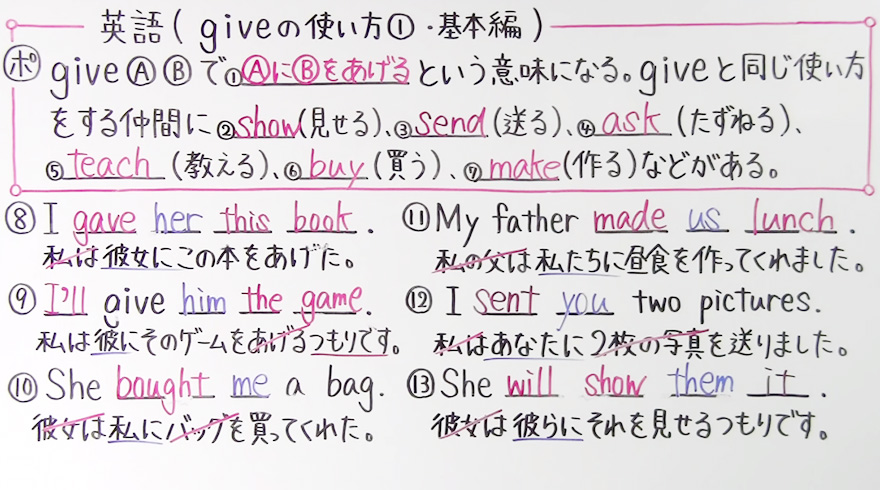 英語(giveの使い方①・基本編)
ポ giveⒶⒷで①ⒶにⒷをあげるという意味になる。giveと同じ使い方
をする仲間に②show(見せる)、③send(送る)、④ask(たずねる)、
⑤teach(教える)、⑥buy(買う)、⑦make(作る)などがある。
⑧I gave her this book.
私は彼女にこの本をあげた。
⑨I'll give him the game.
私は彼にそのゲームをあげるつもりです。
⑩She bought me a bag.
彼女は私にバッグを買ってくれた。
⑪My father made us lunch.
私の父は私たちに昼食を作ってくれました。
⑫I sent you two pictures.
私はあなたに2枚の写真を送りました。
⑬She will show them it.
彼女は彼らにそれを見せるつもりです。